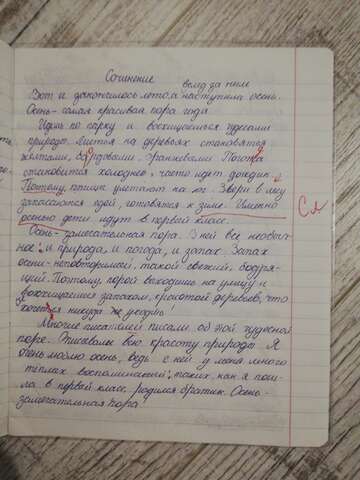 Сочинение
вслед за ним
Вот и закончилось лето, а наступила осень.
Осень - самая красивая пора года
Идёшь по парку и восхищаешься чудесами
природы. Листья на деревьях становятся
желтыми, бардовыми, оранжевыми. Погода
становится холоднее, часто идет дождик.
Поэтому, птицы улетают на юг. Звери в лесу
запасаются едой, готовятся к зиме. Именно
осенью дети идут в первый класс.
Осень - замечательная пора. В ней все необыч-
ное: и природа, и погода, и запах. Запах
осени - неповторимый, такой свежий, бодря-
щий. Поэтому, порой выходишь на улицу и
восхищаешься запахом, красотой деревьев, что
хочется никуда не уходить!
Многие писатели писали об этой чудесной
поре. Описывали всю красоту природы. Я
очень люблю осень, ведь с ней у меня много
теплых воспоминаний: таких, как я пош-
ла в первый класс, родился братик. Осень -
замечательная пора!
Сл